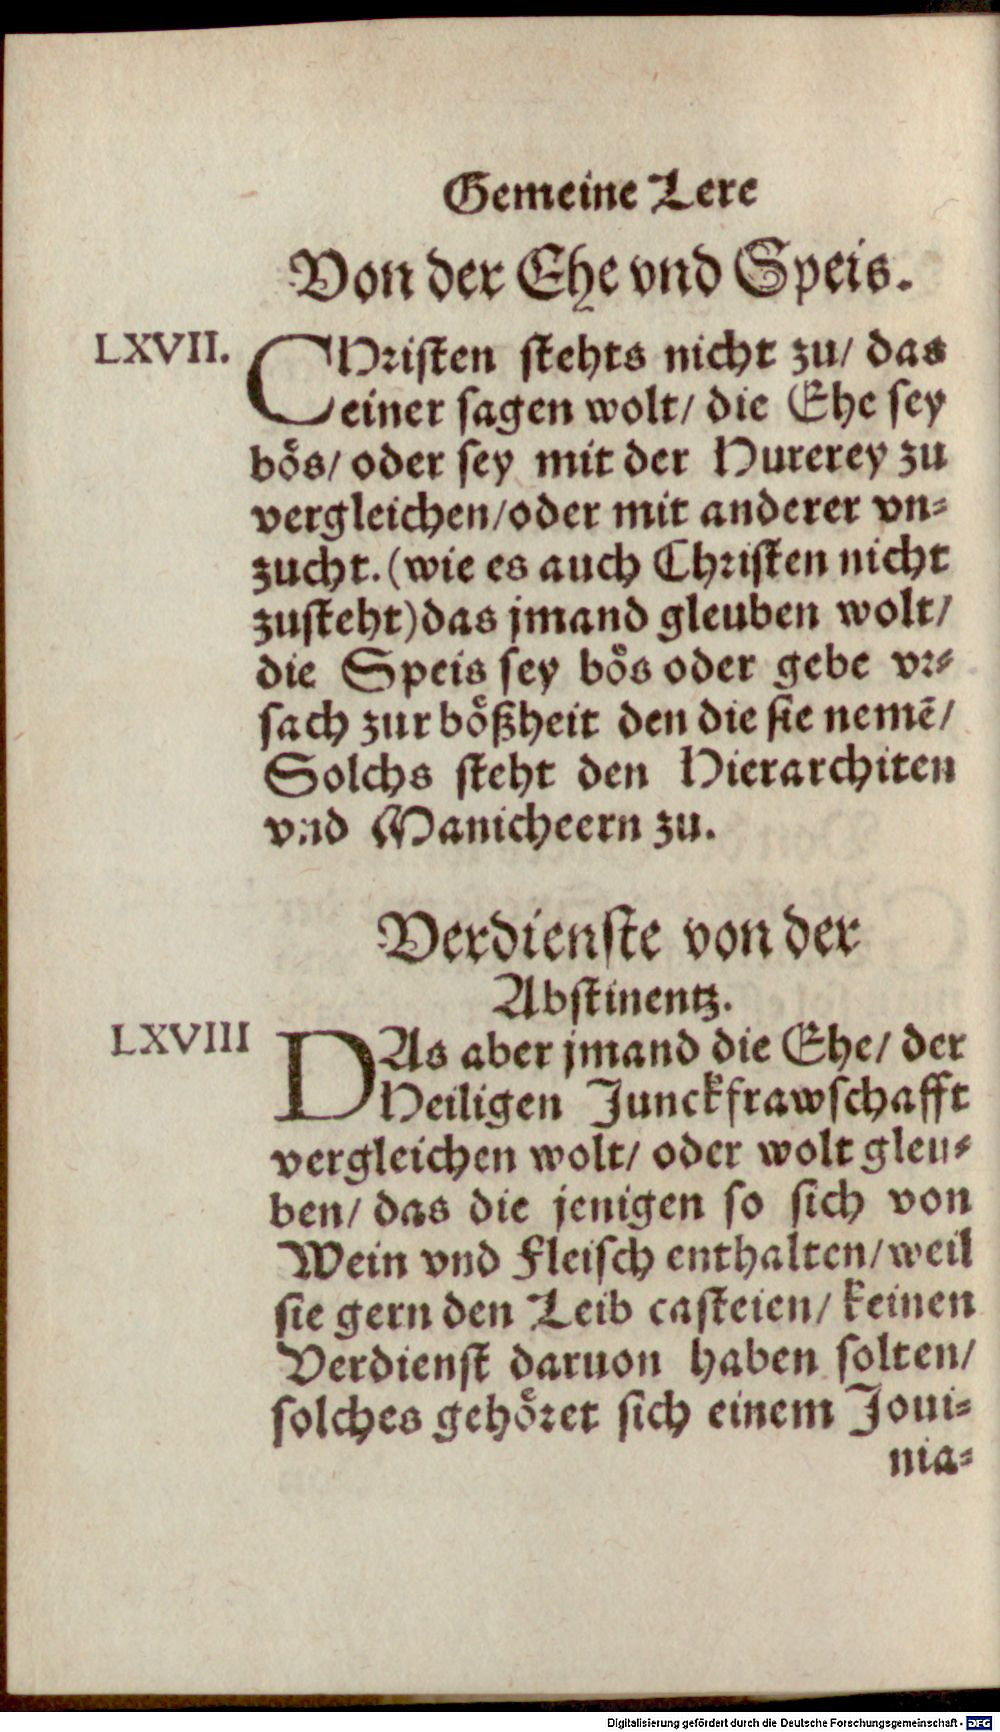 Gemeine Lere
Von der Ehe vnd Speis.
LXVII. CHristen stehts nicht zu/ das
einer sagen wolt/ die Ehe sey
bös/ oder sey mit der Hurerey zu
vergleichen/oder mit anderer vn-
zucht. (wie es auch Christen nicht
zusteht) das jmand gleuben wolt/
die Speis sey bös oder gebe vr-
sach zur bößheit den die sie nemē/
Solchs steht den Hierarchiten
vnd Manicheern zu.
Verdienste von der
Abstinentz.
LXVIII DAs aber jmand die Ehe/ der
Heiligen Junckfrawschafft
vergleichen wolt/ oder wolt gleu-
ben/ das die jenigen so sich von
Wein vnd Fleisch enthalten/weil
sie gern den Leib casteien/ keinen
Verdienst daruon haben solten/
solches gehöret sich einem Joui-
nia-
Digitalisierung gefördert durch die Deutsche Forschungsgemeinschaft - DFG